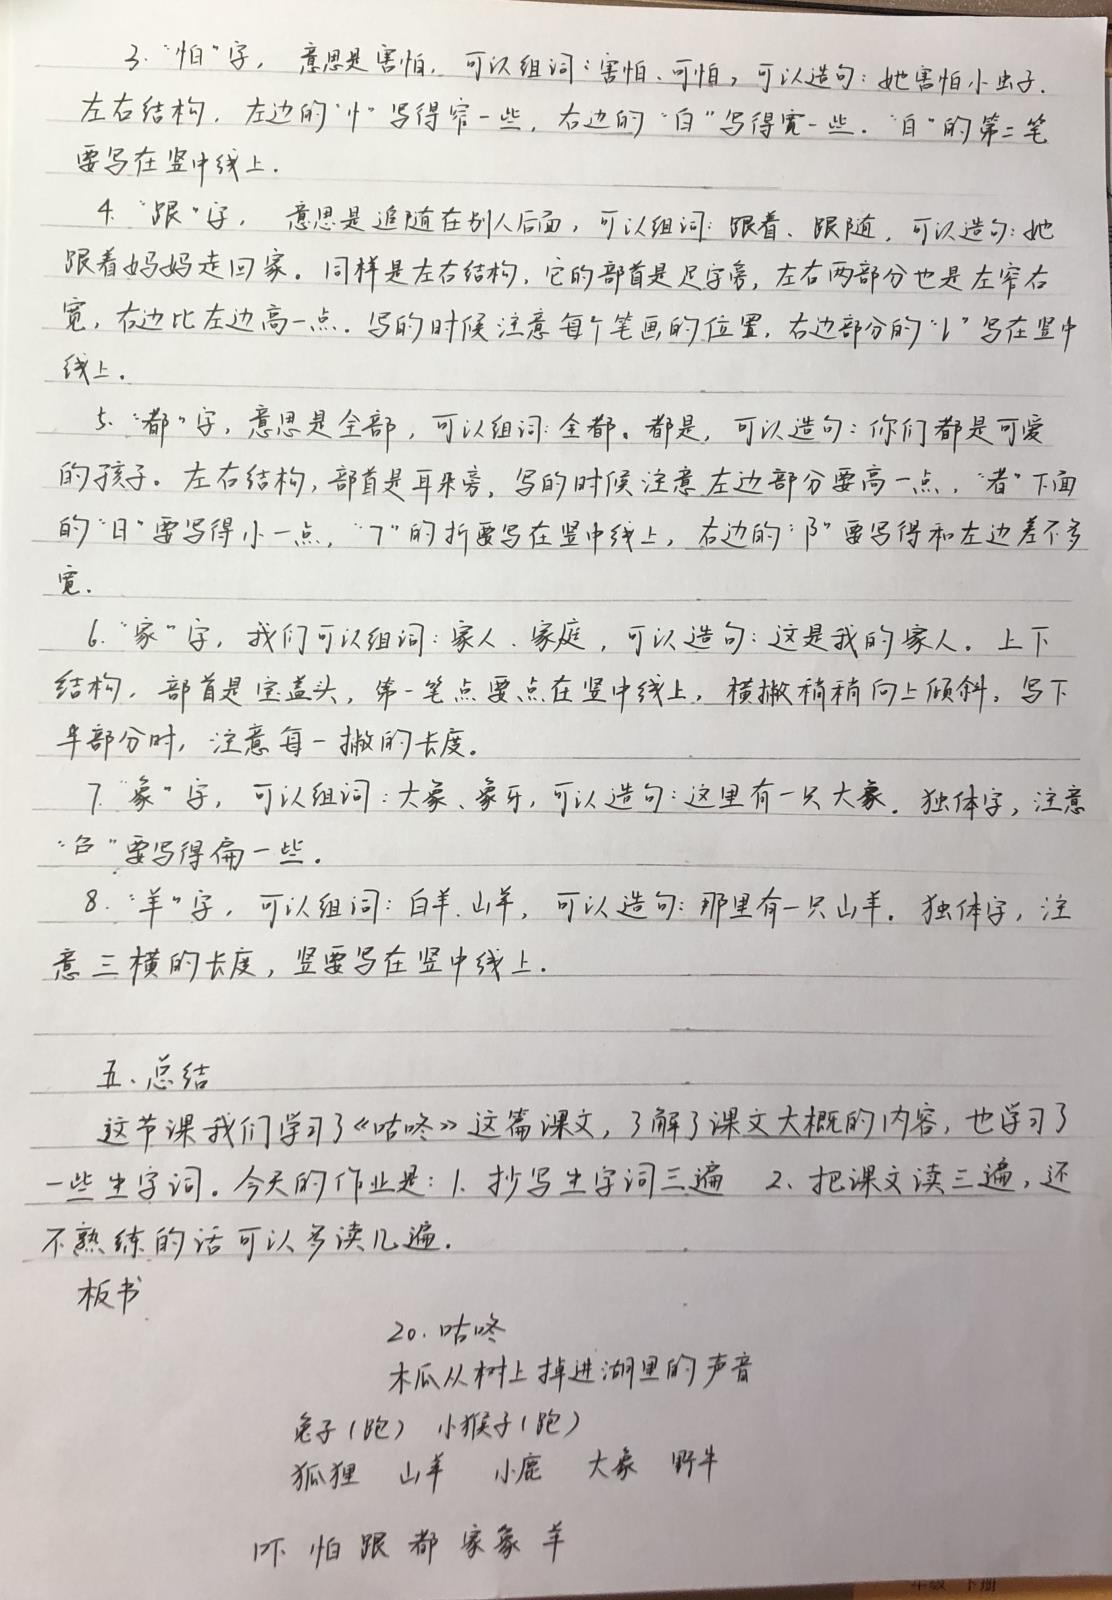 3. “怕”字， 意思是害怕，可以组词：害怕、可怕，可以造句：她害怕小虫子.
左右结构，左边的“忄”写得窄一些，右边的“白”写得宽一些．“白”的第二笔
要写在竖中线上．
4. “跟”字， 意思是追随在别人后面，可以组词：跟着、跟随，可以造句：她
跟着妈妈走回家。同样是左右结构，它的部首是足字旁，左右两部分也是左窄右
宽，右边比左边高一点．写的时候注意每个笔画的位置，右边部分的“㇙”写在竖中
线上．
5. “都”字，意思是全部，可以组词：全都。都是，可以造句：你们都是可爱
的孩子。左右结构，部首是耳朵旁，写的时候注意左边部分要高一点，“者”下面
的“日”要写得小一点，“㇕”的折要写在竖中线上，右边的“阝”要写得和左边差不多
宽．
6. “家”字，我们可以组词：家人、家庭，可以造句：这是我的家人。上下
结构，部首是宝盖头，第一笔点要点在竖中线上，横撇稍稍向上倾斜，写下
半部分时，注意每一撇的长度。
7. “象”字，可以组词：大象、象牙，可以造句：这里有一只大象．独体字，注意
“𠂊”要写得扁一些．
8. “羊”字，可以组词：白羊、山羊，可以造句：那里有一只山羊．独体字，注
意三横的长度，竖要写在竖中线上．
五、总结
这节课我们学习了《咕咚》这篇课文，了解了课文大概的内容，也学习了
一些生字词。今天的作业是：1. 抄写生字词三遍 2. 把课文读三遍，还
不熟练的话可以多读几遍．
板书
20. 咕咚
木瓜从树上掉进湖里的声音
兔子（跑） 小猴子（跑）
狐狸 山羊 小鹿 大象 野牛
吓 怕 跟 都 家 象 羊
年级 下册